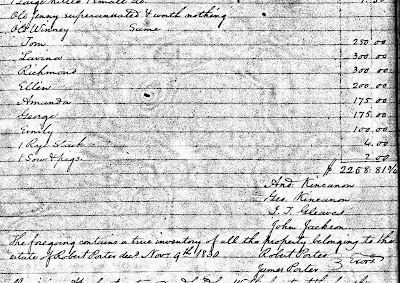 1 Large kettle 1 small do. 1.50
Old Jenny superanuated & worth nothing
Old Winney Same
Tom 250.00
Lavina 300.00
Richmond 300.00
Ellen 200.00
Amanda 175.00
George 175.00
Emily 100.00
1 Rye Stack 4.00
1 Sow & pigs 2.00
$ 2268.81
And. Kincanon
Geo. Kincanon
J. T. Gleaves
John Jackson
The foregoing contains a true inventory of all the property belonging to the
estate of Robert Porter decd. Novr. 9th 1830. Robert Porter
James Porter } Exors